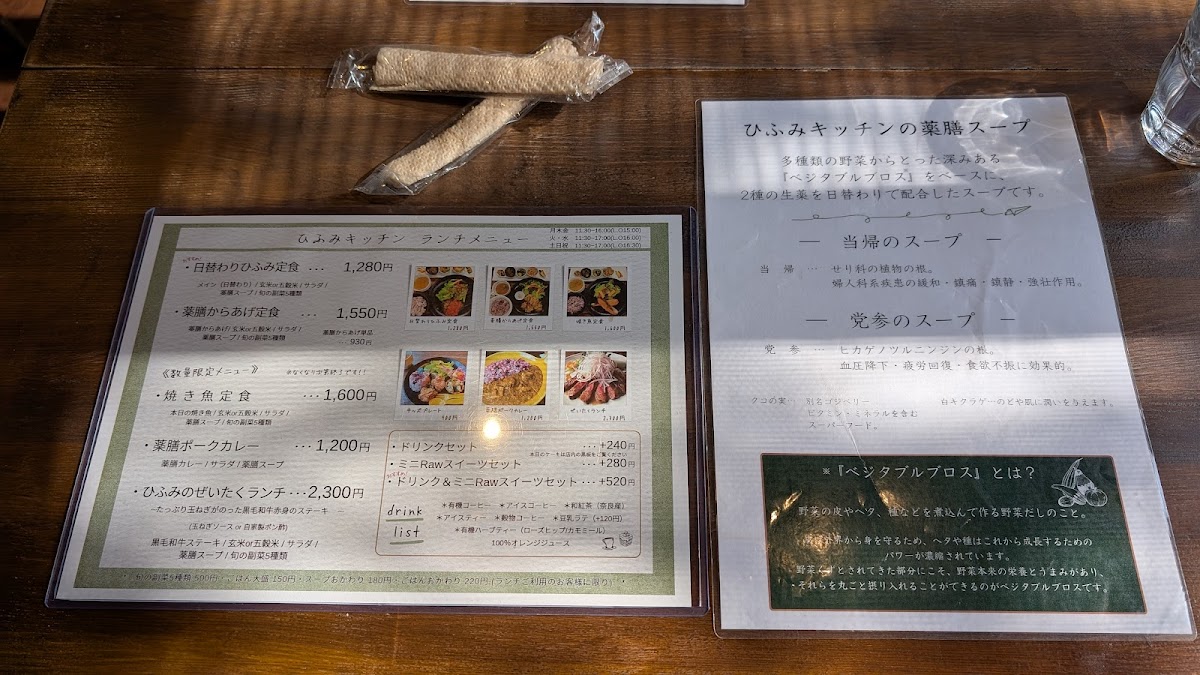 ひふみキッチン ランチメニュー
月木金 11:30~16:00(L.O15:00)
火・水 11:30~17:00(L.O16:00)
土日祝 11:30~17:00(L.O16:30)
・日替わりひふみ定食 ... 1,280円
メイン（日替わり）/ 玄米or五穀米 / サラダ /
薬膳スープ / 旬の副菜5種類
・薬膳からあげ定食 ... 1,550円
薬膳からあげ/ 玄米or五穀米 / サラダ /
薬膳スープ / 旬の副菜5種類
薬膳からあげ単品
... 930円
《数量限定メニュー》 ※なくなり次第終了です！！
・焼き魚定食 ... 1,600円
本日の焼き魚 / 玄米or五穀米 / サラダ /
薬膳スープ / 旬の副菜5種類
・薬膳ポークカレー ... 1,200円
薬膳カレー / サラダ / 薬膳スープ
・ひふみのぜいたくランチ ... 2,300円
~たっぷり玉ねぎがのった黒毛和牛赤身のステーキ
(玉ねぎソース or 自家製ポン酢)
黒毛和牛ステーキ / 玄米or五穀米 / サラダ /
薬膳スープ / 旬の副菜5種類
薬膳からあげ定食
焼き魚定食
薬膳ポークカレー
ぜいたくランチ
・ドリンクセット ... +240円
本日のケーキは店内の黒板をご覧ください
・ミニRawスイーツセット ... +280円
・ドリンク＆ミニRawスイーツセット ... +520円
drink
list
＊有機コーヒー ＊アイスコーヒー ＊和紅茶（奈良産）
＊アイスティー ＊穀物コーヒー ＊豆乳ラテ（+120円）
＊有機ハーブティー（ローズヒップ/カモミール）
100%オレンジジュース
旬の副菜5種類 500円・ごはん大盛 150円・スープおかわり 180円・ごはんおかわり 220円 (ランチご利用のお客様に限り)
ひふみキッチンの薬膳スープ
多種類の野菜からとった深みある
『ベジタブルブロス』をベースに、
2種の生薬を日替わりで配合したスープです。
― 当帰のスープ ―
当 帰 … せり科の植物の根。
婦人科系疾患の緩和・鎮痛・鎮静・強壮作用。
― 党参のスープ ―
党 参 … ヒカゲノツルニンジンの根。
血圧降下・疲労回復・食欲不振に効果的。
クコの実… 別名ゴジベリー
ビタミン・ミネラルを含む
スーパーフード。
白キクラゲ…のどや肌に潤いを与えます。
※『ベジタブルブロス』とは？
野菜の皮やヘタ、種などを煮込んで作る野菜だしのこと。
外界から身を守るため、ヘタや種はこれから成長するための
パワーが濃縮されています。
野菜くずとされてきた部分にこそ、野菜本来の栄養とうまみがあり、
それらを丸ごと摂り入れることができるのがベジタブルブロスです。